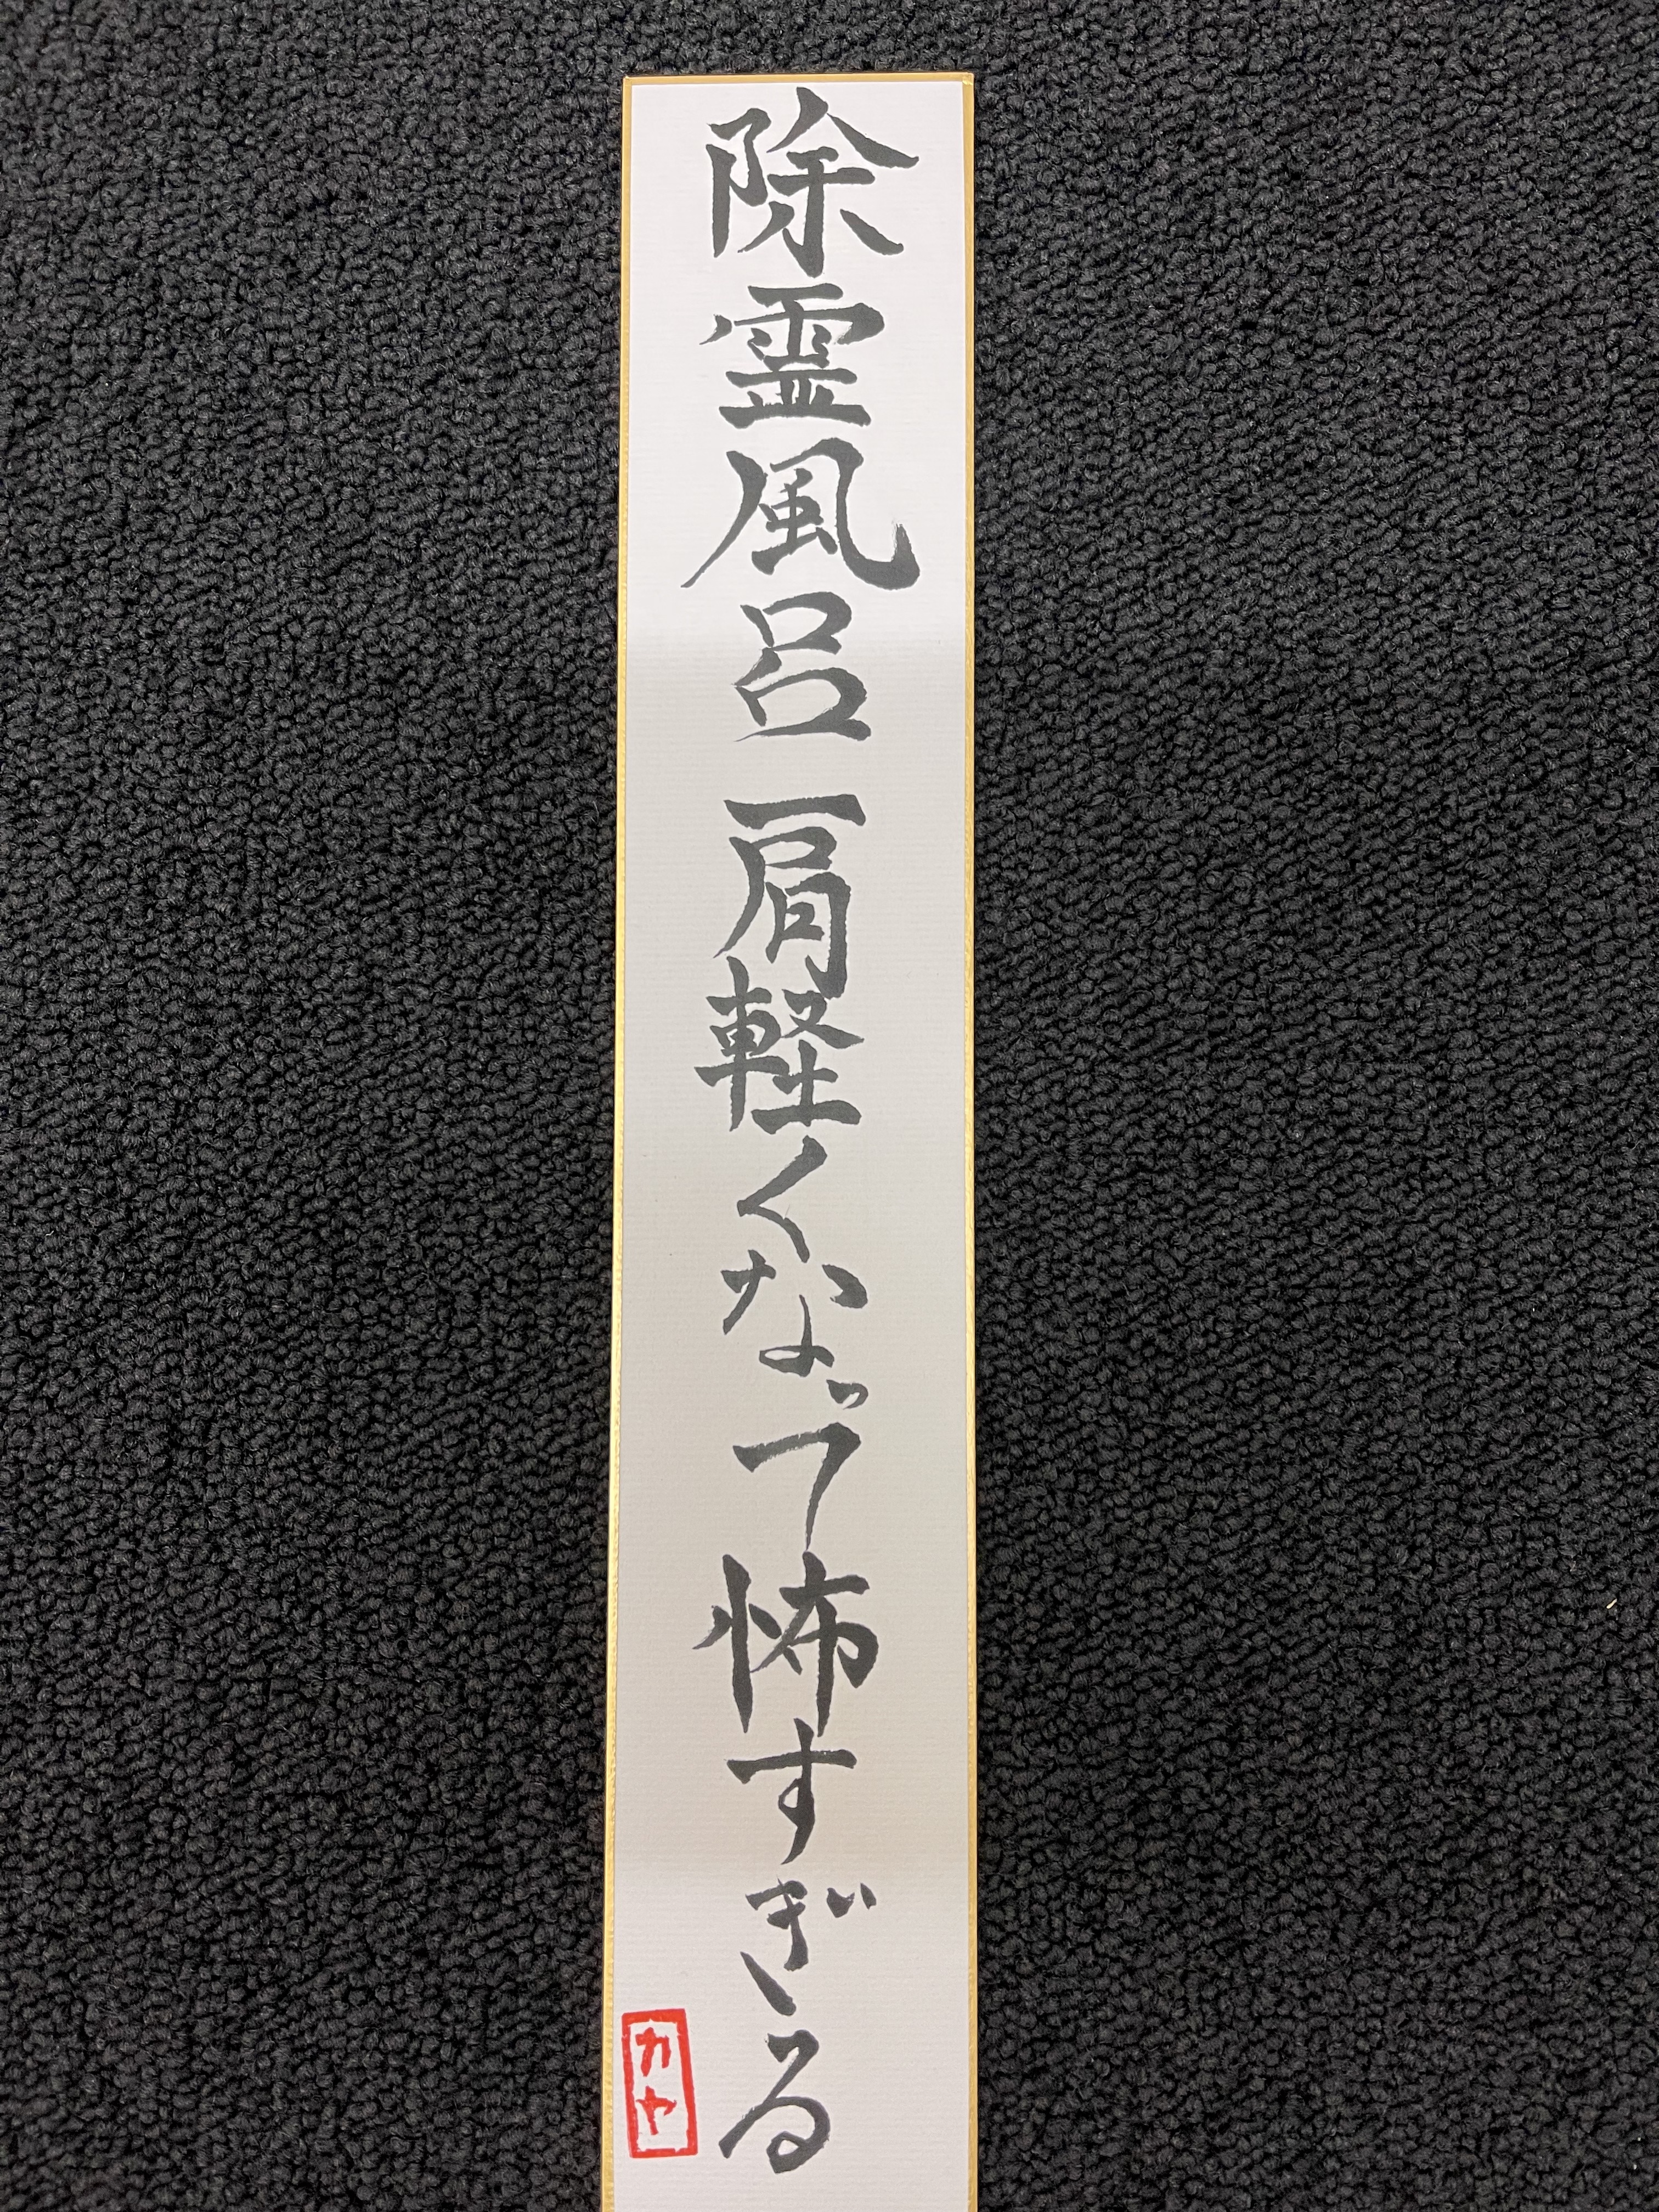 除霊風呂肩軽くなって怖すぎる
カヤ